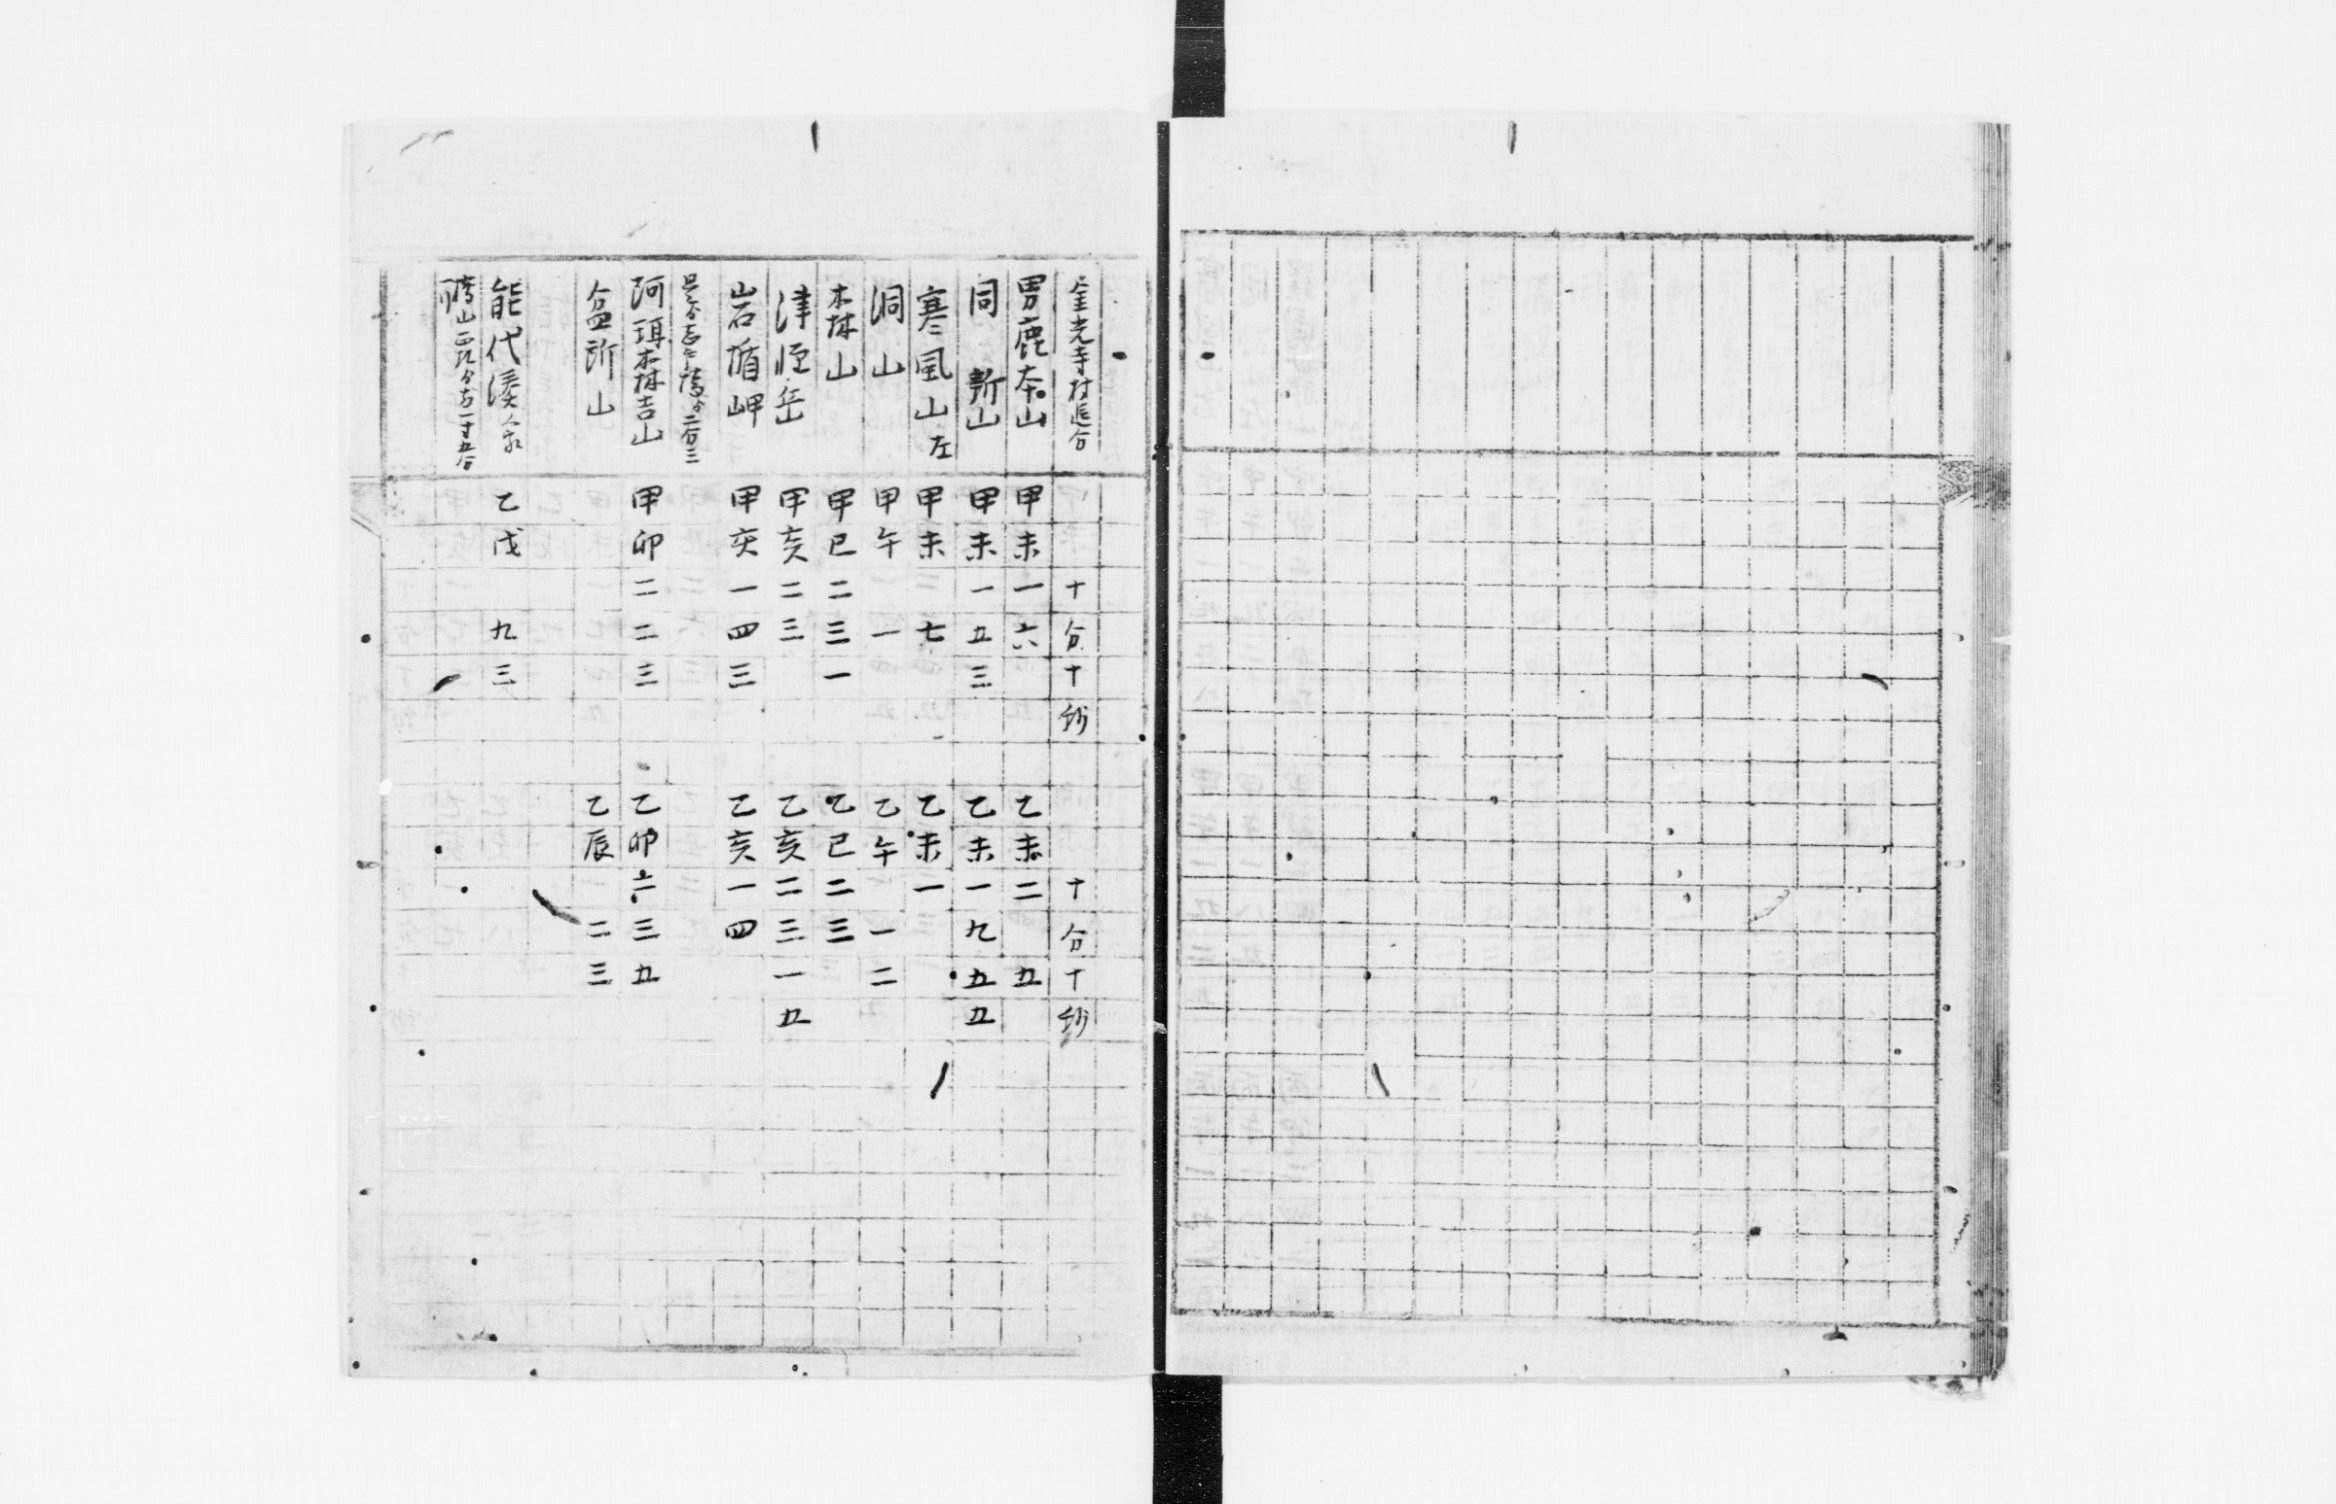 金光寺村近合 十分十秒 十分十秒
男鹿本山 甲未一六 乙未二五
同新山 甲未一五三 乙未一九五五
寒風山左 甲未七 乙未一
洞山 甲午一 乙午一二
森山 甲巳二三一 乙巳二三
津軽岳 甲亥二三 乙亥二三一五
岩楯岬 甲亥一四三 乙亥一四
阿瑱森吉山 甲卯二二三 乙卯六三五
盆所山 乙辰二三
能代湊 乙戌九三